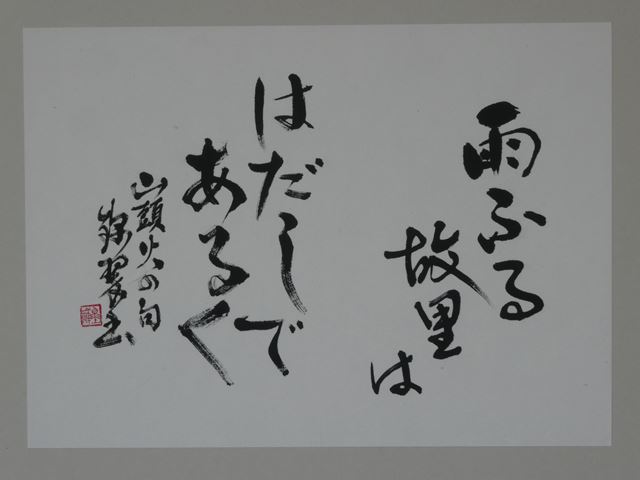 雨ふる
故里
は
はだしで
あるく
山頭火の句
翠書